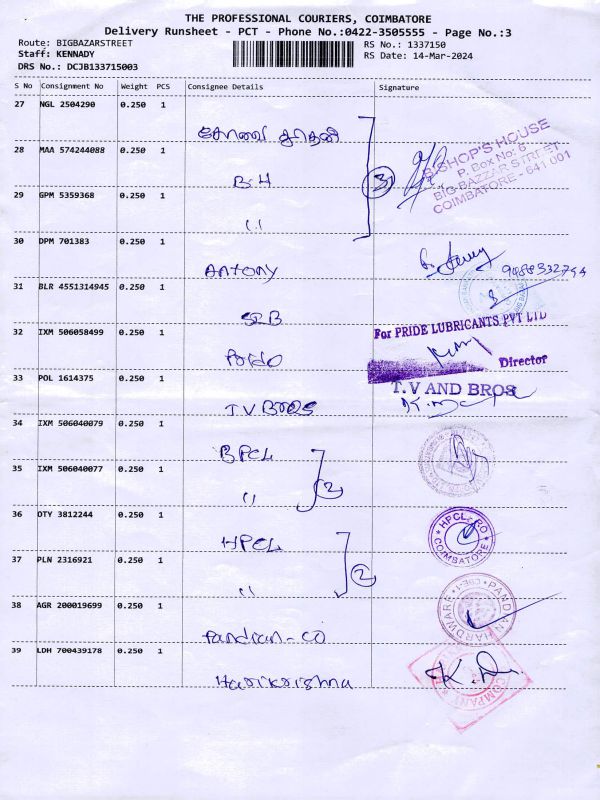 THE PROFESSIONAL COURIERS, COIMBATORE
Delivery Runsheet - PCT - Phone No.:0422-3505555 - Page No.:3
Route: BIGBAZARSTREET
RS No.: 1337150
Staff: KENNADY
RS Date: 14-Mar-2024
DRS No.: DCJB133715003
S No Consignment No Weight PCS Consignee Details Signature
27 NGL 2504290 0.250 1
கோவை
28 MAA 574244088 0.250 1
B.H
3
BISHOP'S HOUSE
P. Box No. 6
BIG BAZZAR STREET
COIMBATORE - 641 001
29 GPM 5359368 0.250 1
״
30 DPM 701383 0.250 1
ANTONY
31 BLR 4551314945 0.250 1
SRB
32 IXM 506058499 0.250 1
For PRIDE LUBRICANTS PVT LTD
Director
33 POL 1614375 0.250 1
T.V BROS
T.V AND BROS
34 IXM 506040079 0.250 1
BPCL
35 IXM 506040077 0.250 1
״
2
36 DTY 3812244 0.250 1
HPCL
HPCL-RO
COIMBATORE
37 PLN 2316921 0.250 1
״
2
38 AGR 200019699 0.250 1
Pandian-co
PANDIAN HARDWARE
39 LDH 700439178 0.250 1
Harikrishna
COMPANY